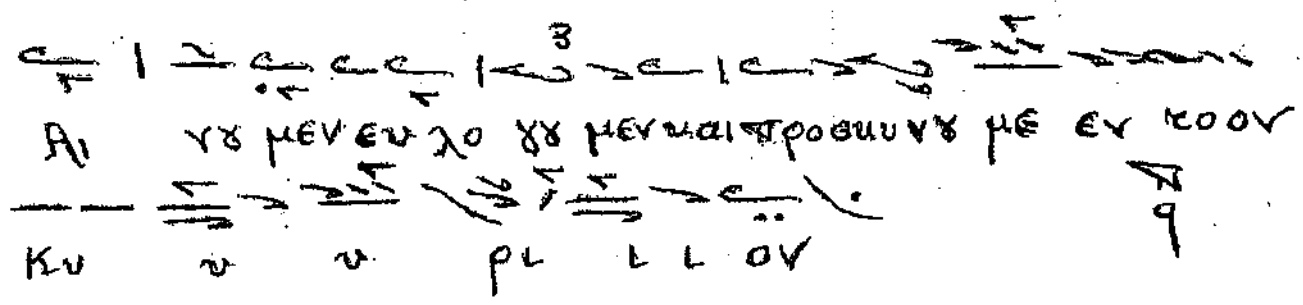 Αι νȣ μεν ευ λο γȣ μεν και προσκυνȣ με εν τοον
Κυ υ υ ρι ι ι ον